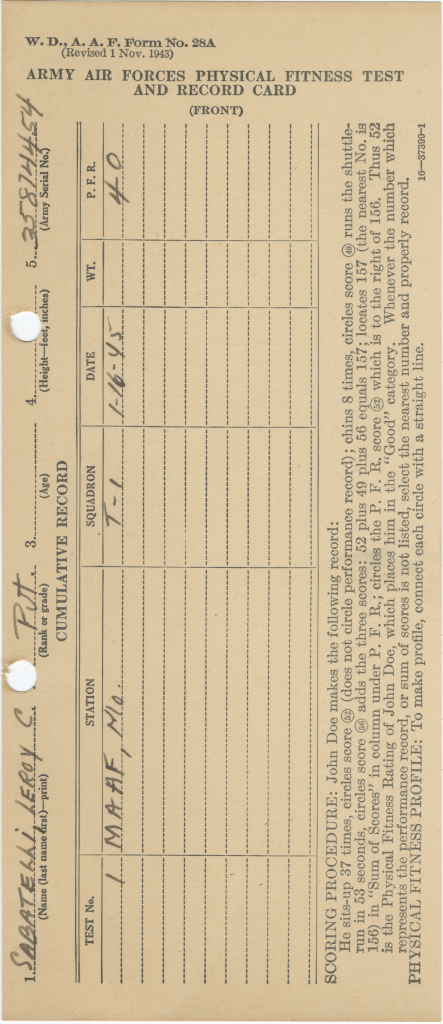 W. D., A. A. F. Form No. 28A
(Revised 1 Nov. 1943)
ARMY AIR FORCES PHYSICAL FITNESS TEST
AND RECORD CARD
(FRONT)
1. SABATELLI, LEROY C. 2. Pvt 3. 4. 5. 35874454
(Name (last name first)—print) (Rank or grade) (Age) (Height—feet, inches) (Army Serial No.)
CUMULATIVE RECORD
TEST No. STATION SQUADRON DATE WT. P. F. R.
1 MAAF, Mo. T-1 1-16-45 40
SCORING PROCEDURE: John Doe makes the following record:
He sits-up 37 times, circles score 52 (does not circle performance record); chins 8 times, circles score 49 runs the shuttle-
run in 53 seconds, circles score 56 adds the three scores: 52 plus 49 plus 56 equals 157; locates 157 (the nearest No. is
156) in "Sum of Scores" in column under P. F. R.; circles the P. F. R. score 52 which is to the right of 156. Thus 52
is the Physical Fitness Rating of John Doe, which places him in the "Good" category. Whenever the number which
represents the performance record, or sum of scores is not listed, select the nearest number and properly record.
PHYSICAL FITNESS PROFILE: To make profile, connect each circle with a straight line.
16—37399-1